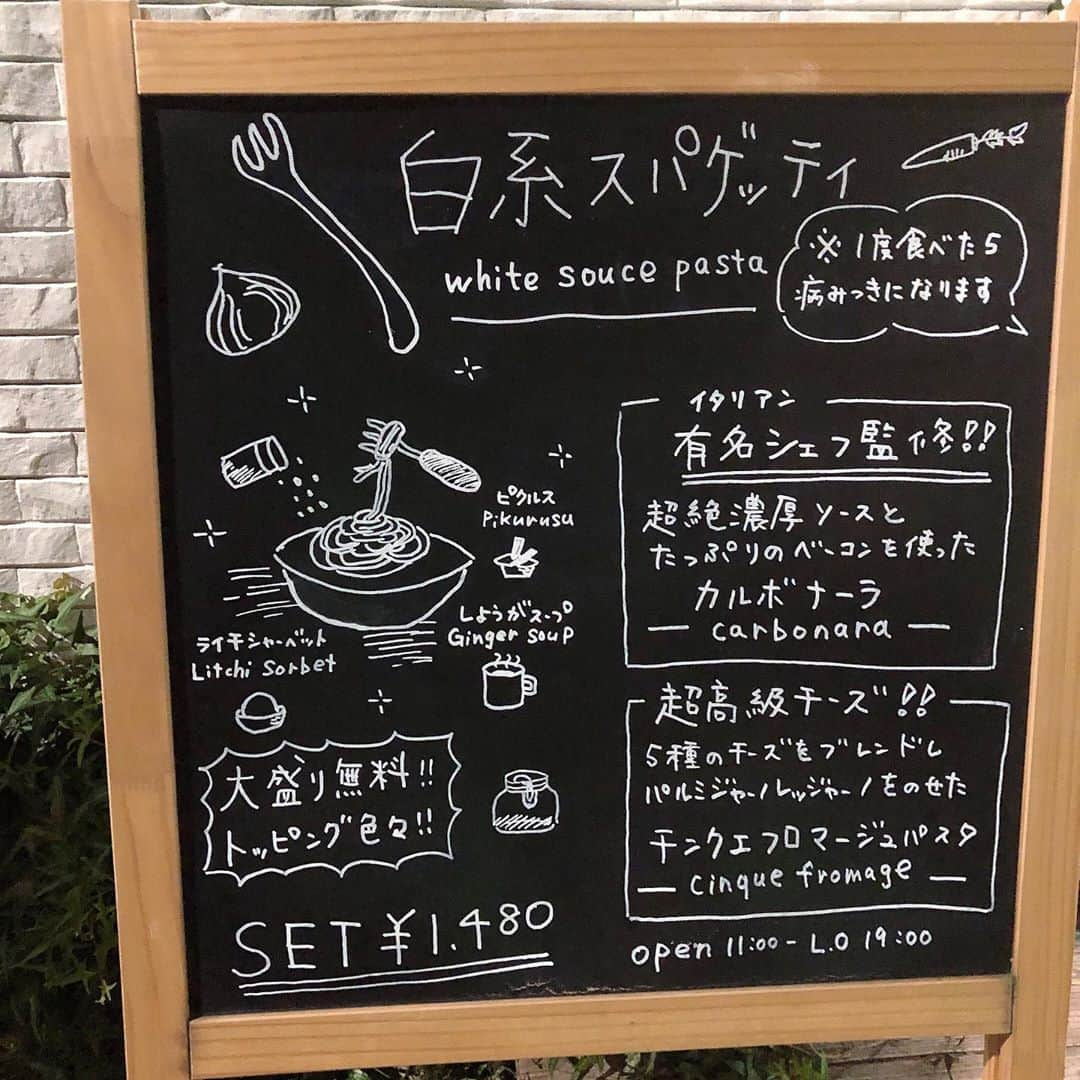 白系スパゲッティ
white souce pasta
※1度食べたら
病みつきになります
イタリアン
有名シェフ監修!!
超絶濃厚ソースと
たっぷりのベーコンを使った
カルボナーラ
— carbonara —
ピクルス
Pikurusu
しょうがスープ
Ginger soup
ライチシャーベット
Litchi Sorbet
大盛り無料!!
トッピング色々!!
超高級チーズ!!
5種のチーズをブレンドし
パルミジャーノレッジャーノをのせた
チンクエフロマージュパスタ
— cinque fromage —
SET ¥1.480
open 11:00 - L.O 19:00